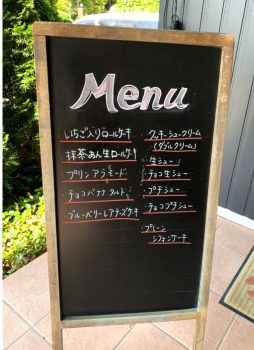 Menu
いちご入りロールケーキ
抹茶あん生ロールケーキ
プリンアラモード
チョコバナナタルト
ブルーベリーレアチーズケーキ
・クッキーシュークリーム
(ダブルクリーム)
・生シュー
・チョコ生シュー
・プチシュー
・チョコプチシュー
・プレーン
シフォンケーキ